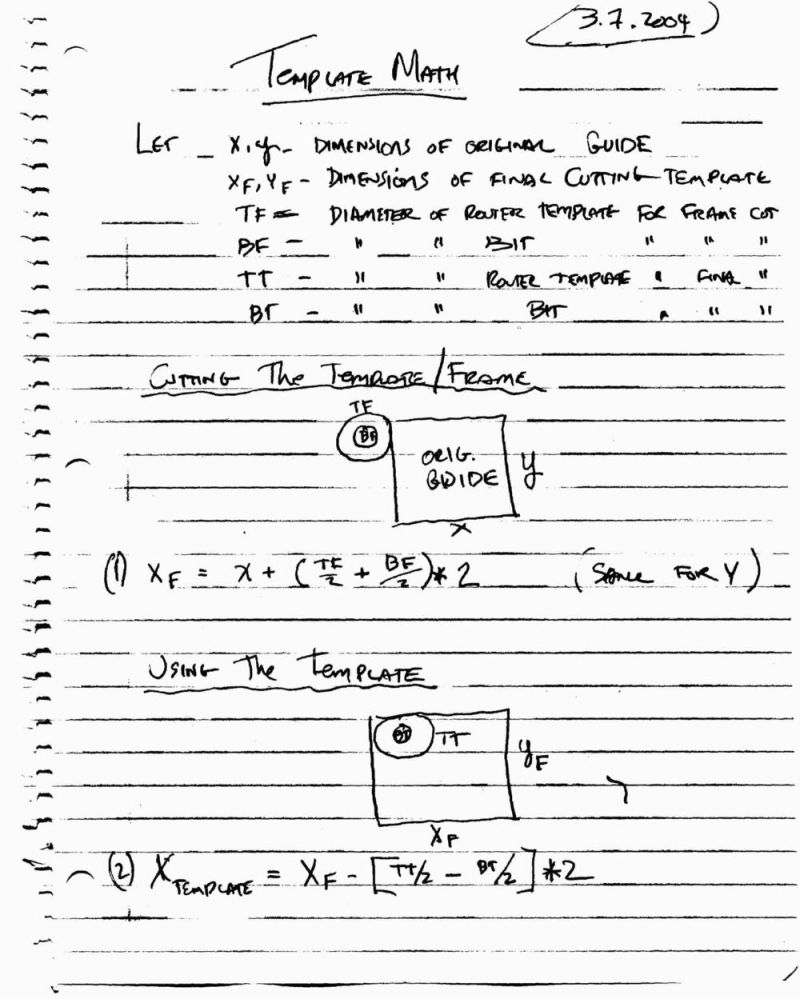 (3.7.2004)
TEMPLATE MATH
LET - X, y - DIMENSIONS OF ORIGINAL GUIDE
XF, YF - DIMENSIONS OF FINAL CUTTING TEMPLATE
TF = DIAMETER OF ROUTER TEMPLATE FOR FRAME CUT
BF - " " BIT " " "
TT - " " ROUTER TEMPLATE " FINAL "
BT - " " BIT " " "
CUTTING The TEMPLATE/FRAME
TF
BF
ORIG.
GUIDE
y
X
(1) XF = X + (TF/2 + BF/2) * 2 (SAME FOR Y)
USING The TEMPLATE
BT
TT
yF
XF
(2) XTEMPLATE = XF - [TT/2 - BT/2] * 2